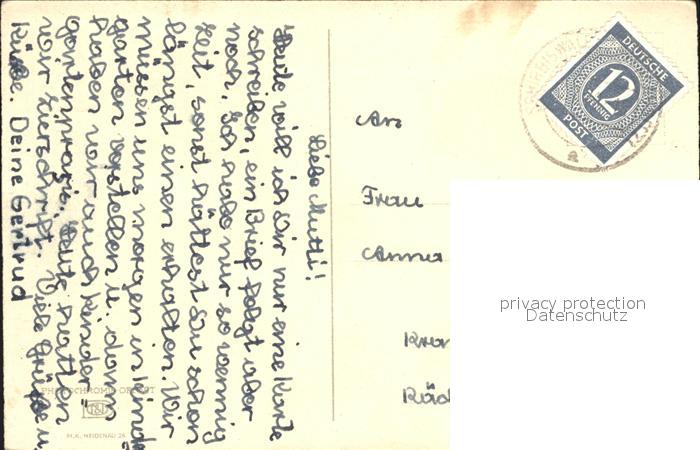 Liebe Mutti!
Heute will ich Dir nur eine Karte
schreiben, ein Brief folgt aber
noch. Ich habe nur so wenig
Zeit, sonst hättest Du schon
längst einen erhalten. Wir
müssen uns morgen im Kinder
garten vorstellen u. dann
haben wir auch Kinder-
gartenpraxis. Heute hatten
wir Kurzschrift. Viele Grüße u.
Küsse. Deine Gertrud
An
Frau
Anna
DEUTSCHE
12
PFENNIG
POST
privacy protection
Datenschutz
M.K. HEIDENAU